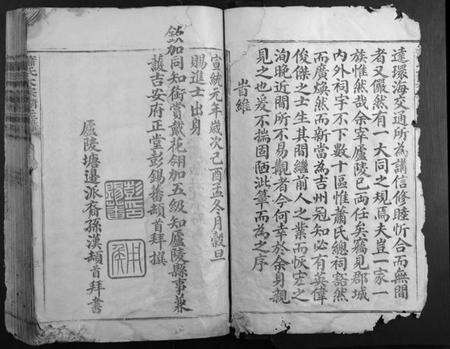 達環海交通所為講信修睦忻合而無間
者又儼然有一大同之規焉夫豈一家一
族惟然哉余宰廬陵已兩任矣竊見郡城
內外祠宇不下數十區惟蕭氏總祠谿然
而廣煥然而新當為吉州冠知必有英偉
俊傑之士生其間繼前人之業而恢宏之
洵晚近聞所不易觀者今何幸於余身親
見之也爰不揣固陋此筆而為之序
旹維
宣統元年歲次己酉孟冬月穀旦
賜進士出身
欽加同知銜賞戴花翎加五級知廬陵縣事兼
護吉安府正堂彭錫蕃頓首拜撰
廬陵塘邊派裔孫漢頓首拜書